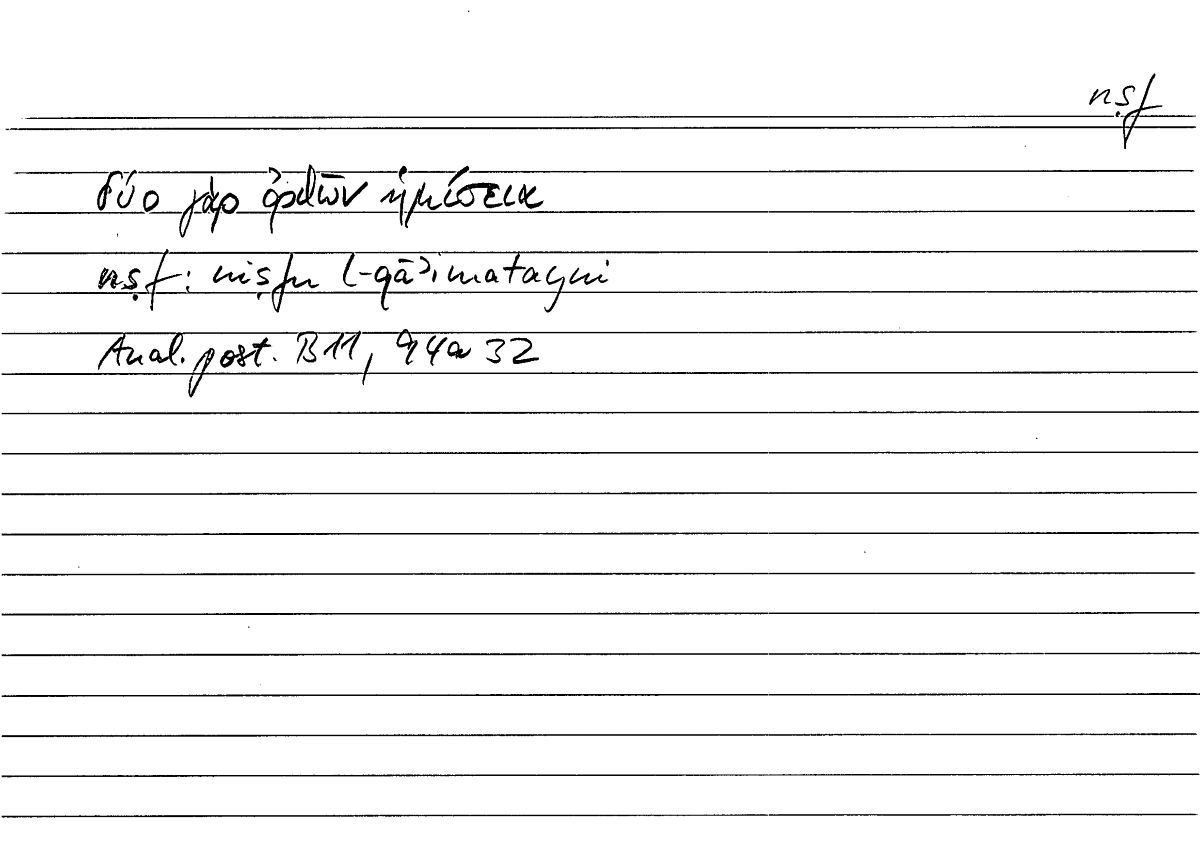 nṣf
δύο γὰρ ὀρθῶν ἡμίσεια
nṣf: niṣfu l-qāʾimatayni
Anal. post. B11, 94a 32